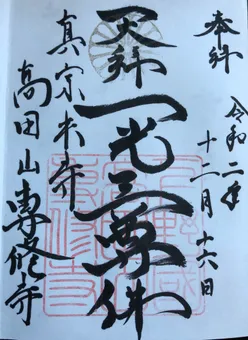 奉拝
令和二年
十一月十六日
天拝一光三尊佛
真宗本寺
高田山専修寺